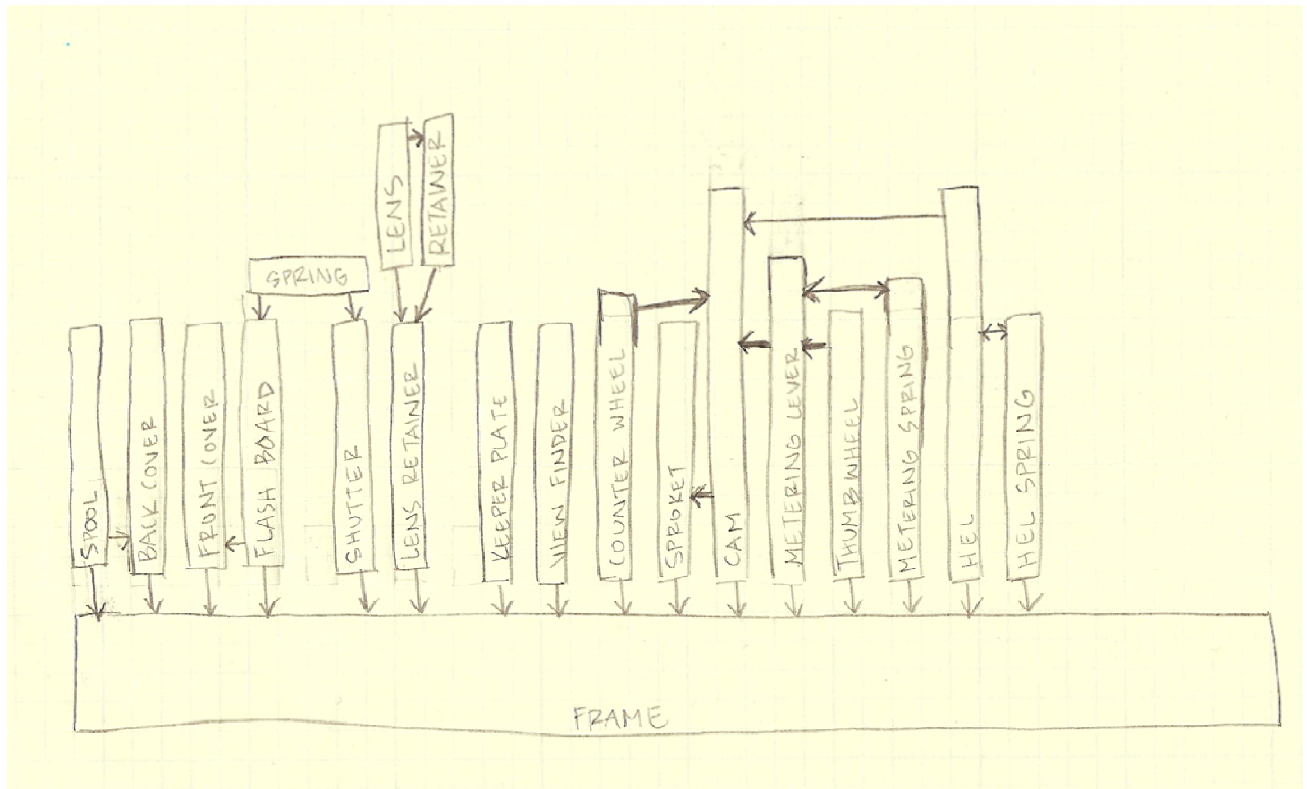 LENS
RETAINER
SPRING
SPOOL
BACK COVER
FRONT COVER
FLASH BOARD
SHUTTER
LENS RETAINER
KEEPER PLATE
VIEW FINDER
COUNTER WHEEL
SPROKET
CAM
METERING LEVER
THUMBWHEEL
METERING SPRING
HEL
HEL SPRING
FRAME